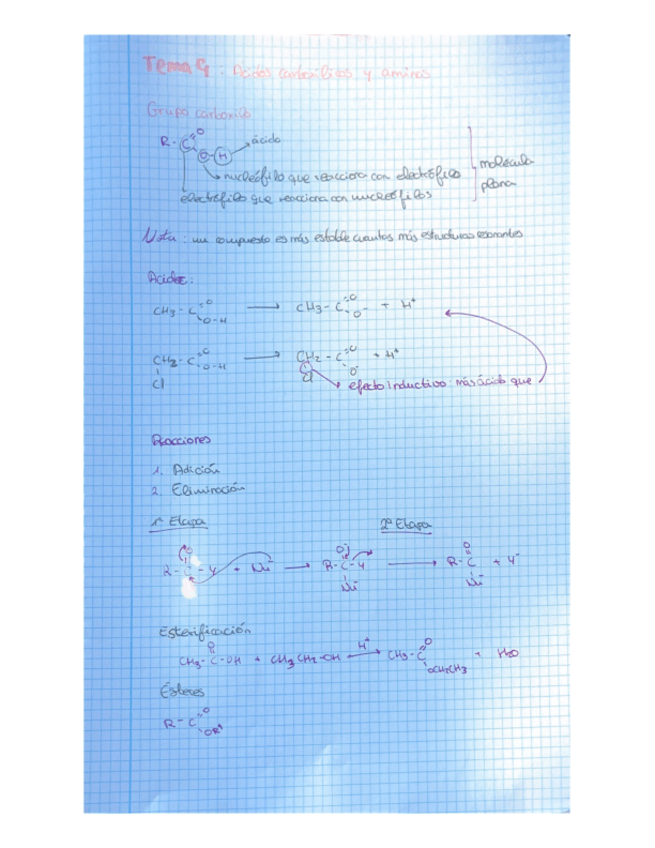 Tema 9: Ácidos carboxílicos y aminas
Grupo carboxilo
R - C = O
O - H → ácido
nucleófilo que reacciona con electrófilo
electrófilo que reacciona con nucleófilos
molécula plana
Nota: un compuesto es más estable cuantas más estructuras resonantes
Acidez:
CH3 - C = O O - H → CH3 - C = O O- + H+
CH2 - C = O O - H → CH2 - C = O O- + H+
Cl Cl
efecto inductivo: más ácido que
Reacciones
1. Adición
2. Eliminación
1ª Etapa 2ª Etapa
R - C - Y + Nu- → R - C - Y → R - C + Y-
O O O
Nu- Nu-
Esterificación
CH3 - C - OH + CH3 CH2 - OH H+ → CH3 - C = O OCH2CH3 + H2O
O
Ésteres
R - C = O OR'